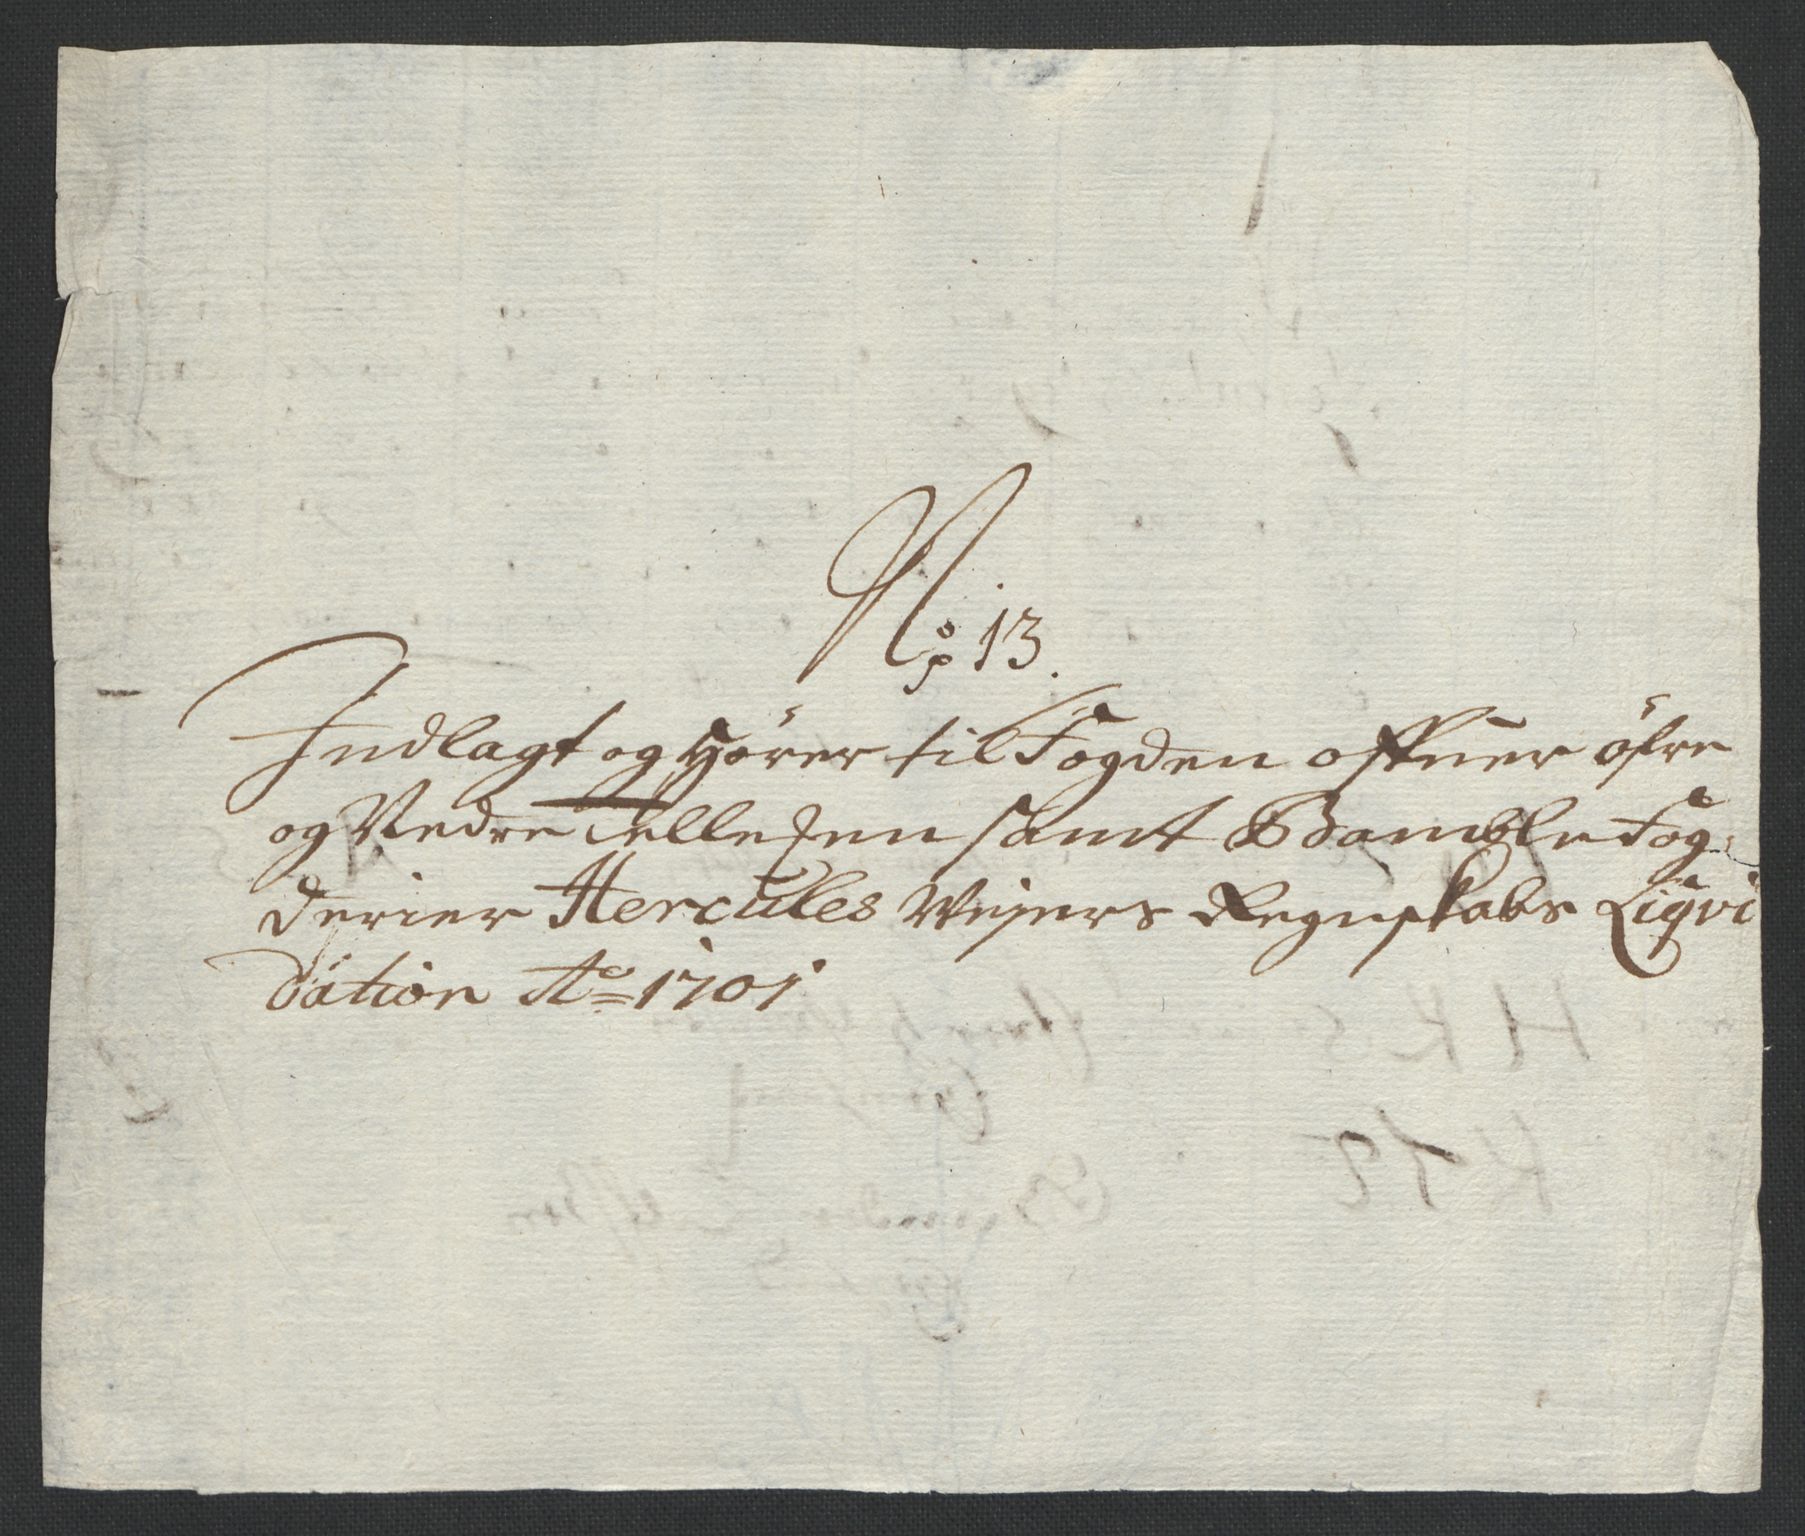 No 13.
Indlagt og hører til Fogden offuer öfre
og Nedre Tellemen samt Bamble Fog-
derier Hercules Weyers Regnskabs Liqvi
dation Ao 1701